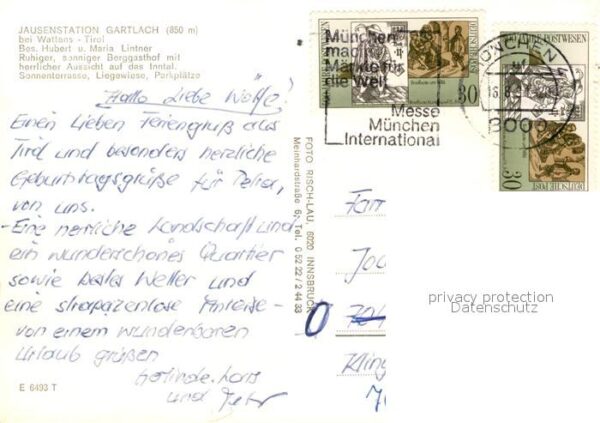 JAUSENSTATION GARTLACH (850 m)
bei Wattens - Tirol
Bes. Hubert u. Maria Lintner
Ruhiger, sonniger Berggasthof mit
herrlicher Aussicht auf das Inntal.
Sonnenterrasse, Liegewiese, Parkplätze
Hallo Liebe Wölfe!
Einen Lieben Feriengruß aus
Tirol und besonders herzliche
Geburtstagsgrüße für Petra,
von uns.
- Eine herrliche Landschaft und
ein wunderschönes Quartier
sowie bestes Wetter und
eine strapazenlose Anreise -
von einem wunderbaren
Urlaub grüßen
und Peter
E 6493 T
FOTO RISCH-LAU, 6020 INNSBRUCK
Meinhardstraße 6, Tel. 0 52 22 / 2 44 33
München
macht
Märkte für
die Welt
Messe
München
International
500 JAHRE POSTWESEN
DEUTSCHE POST
30
MÜNCHEN
8000
500 JAHRE POSTWESEN
DEUTSCHE POST
30
Fam
Jo
Kling
privacy protection
Datenschutz